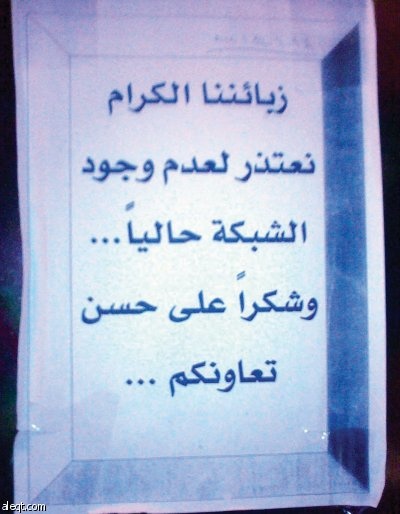 زبائننا الكرام
نعتذر لعدم وجود
الشبكة حالياً...
وشكراً على حسن
تعاونكم ...
aleqt.com